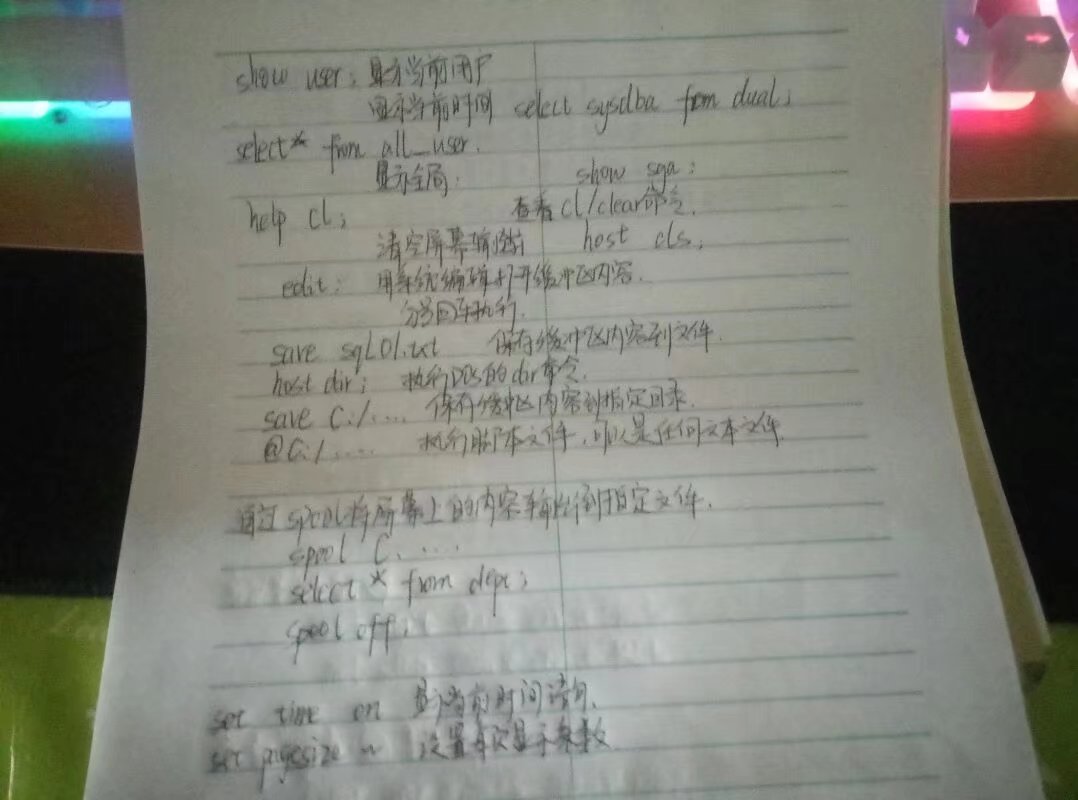 show user; 显示当前用户
显示当前时间 select sysdba from dual;
select* from all_user.
显示全局. show sga;
help cl; 查看cl/clear命令.
清空屏幕输出 host cls;
edit: 用系统编辑打开缓冲区内容.
分号回车执行.
save sql01.txt 保存缓冲区内容到文件.
host dir; 执行DOS的dir命令.
save C:/.... 保存缓冲区内容到指定目录.
@C:/..... 执行脚本文件,可以是任何文本文件.
通过spool将屏幕上的内容输出到指定文件.
spool C.....
select * from dept;
spool off;
set time on 显示当前时间语句.
set pagesize n 设置每次显示条数